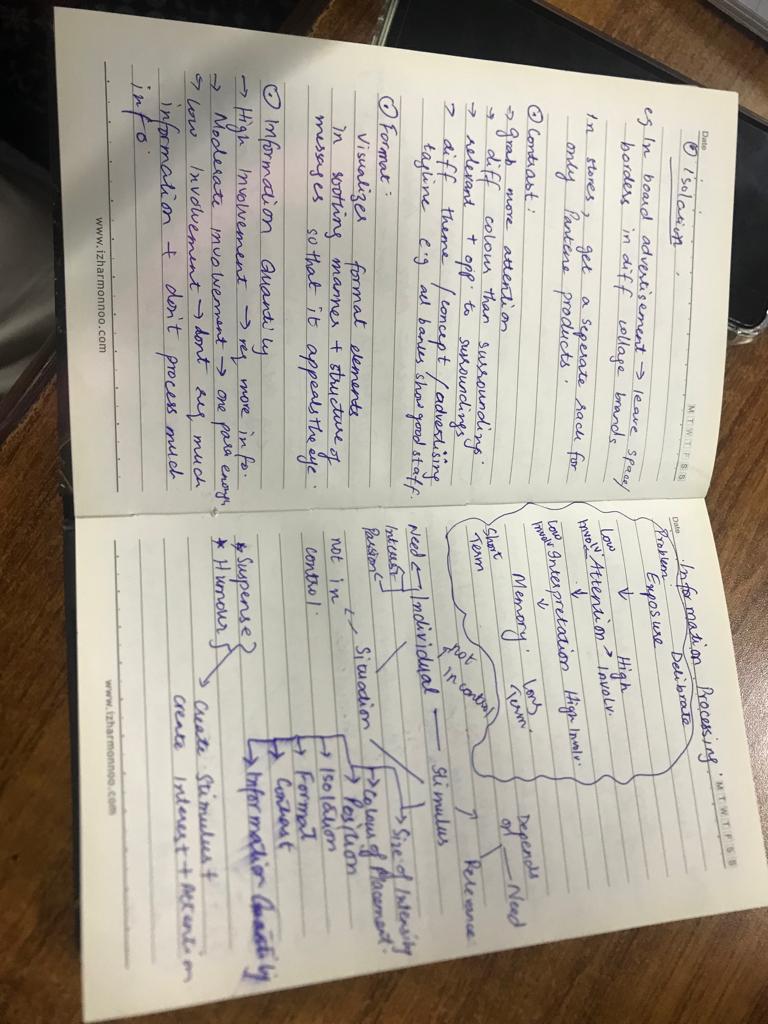 Date
M T W T F S S
Isolation.
eg In board advertisement → leave space/
borders in diff collage brands
In stores, get a seperate rack for
only Pantene products.
Contrast:
→ grab more attention
→ diff colour than surrounding.
→ relevant + opp. to surroundings
> diff theme / concept / advertising
tagline e.g all banks show good staff.
Format:
Visualizes format elements
in soothing manner + structure of
messages so that it appeals the eye.
Information Quantity
→ High Involvement → req more info.
→ Moderate involvement → one para enough
→ Low Involvement → dont req much
information + don't process much
info.
www.izharmonnoo.com
Date
M T W T F S S
Information Processing.
Problem Delibrate
Exposure
Low Involv. Attention → High Involv.
Low Involv Interpretation High Involv.
Memory. Long Term.
Short Term
not In control
Depends on Need
Relevance
Individual Stimulus
Need
Interest
Passion
Situation
not in
control.
Size of Intensity
Colour of Placement.
Position
Isolation
Format
Contrast
Information Quantity
★ Suspense
★ Humour
Create Stimulus +
Create Interest + Attention
www.izharmonnoo.com